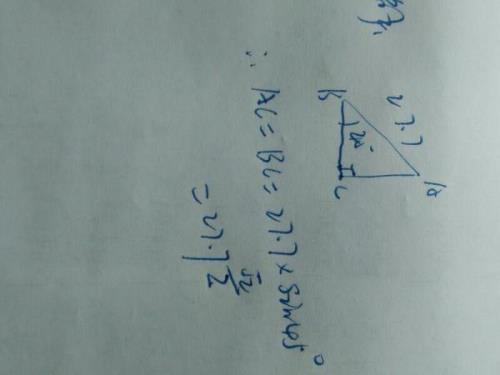 B
27.7
A
C
∴ AC = BC = 27.7 × sin45°
= 27.7 √2/2